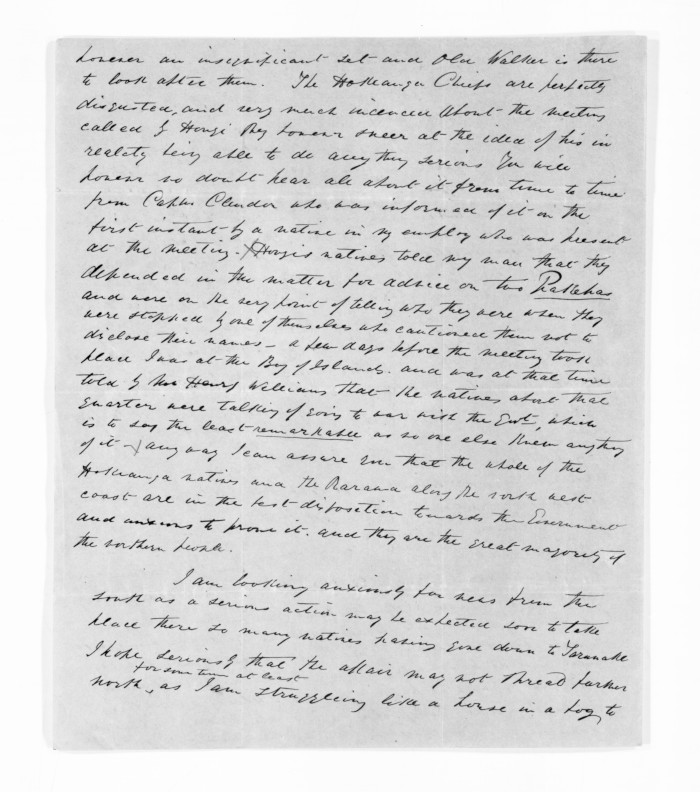 however an insignificant set and Old Walker is there
to look after them. The Hokeanga Chiefs are perfectly
disgusted, and very much incenced about the meeting
called by Hongi they however sneer at the idea of his in
reality being able to do anything serious You will
however no doubt hear all about it from time to time
from Captn Clendon who was informed of it on the
first instant by a native in my employ who was present
at the meeting. Hongis natives told my man that they
depended in the matter for advice on two Pakehas
and were on the very point of telling who they were when they
were stopped by one of themselves who cautioned them not to
disclose their names – a few days before the meeting took
place I was at the Bay of Islands. and was at that time
told by Henry Williams that the natives about that
quarter were talking of going to war with the Govt, which
is to say the least remarkable as no one else knew anything
of it – any way I can assure you that the whole of the
Hokeanga natives and the Rarawa along the north west
coast are in the best disposition towards the Government
and anxious to prove it. and they are the great majority of
the northern people.
I am looking anxiously for news from the
south as a serious action may be expected soon to take
place there so many natives having gone down to Taranake
I hope seriously that the affair may not spread farther
for some time at least
north, as I am struggleing like a horse in a bog, to